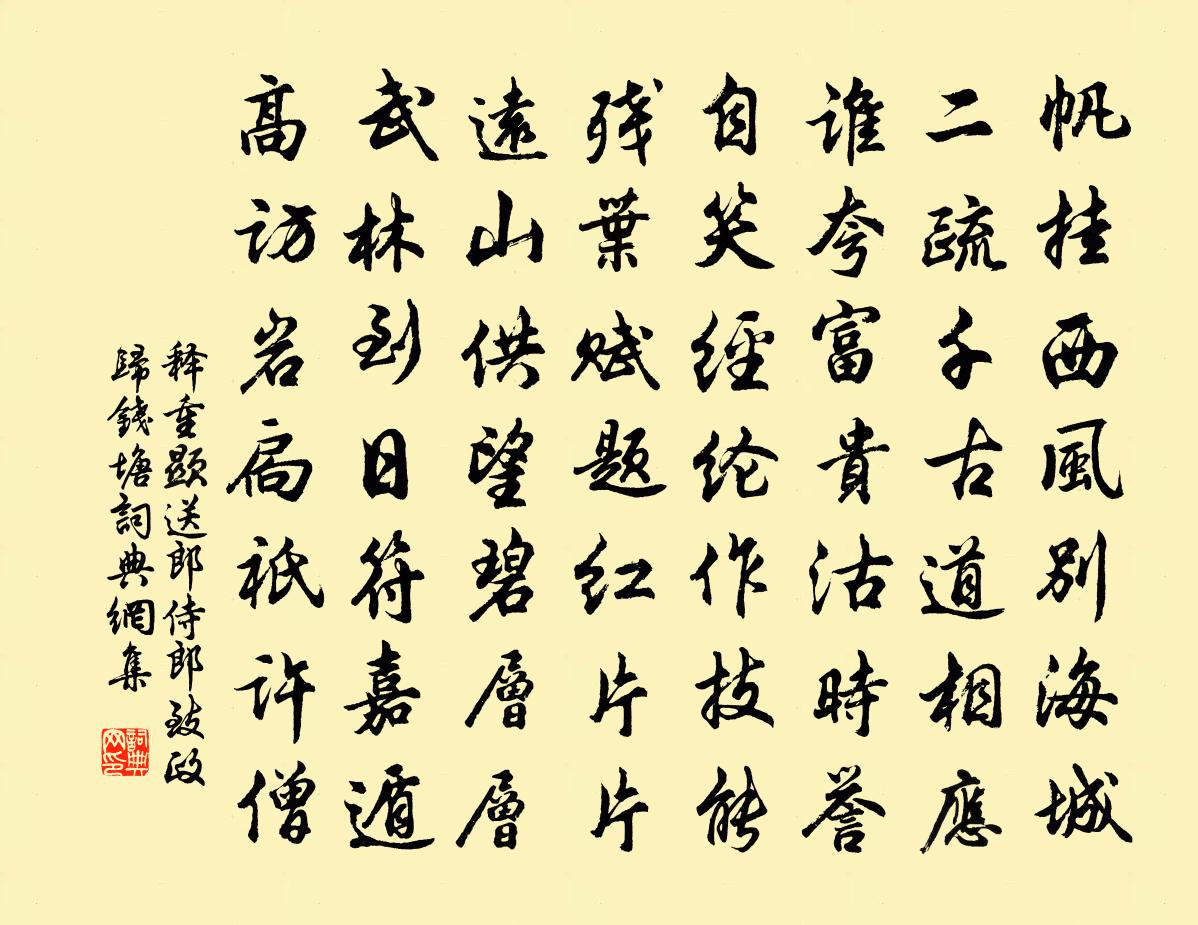 帆挂西風别海城
二疏千古道相應
谁夸富貴沽時誉
自笑經纶作技能
残葉赋题红片片
遠山供望碧層層
武林到日符嘉遁
高访岩扃祇许僧
释重顯送郎侍郎致政
歸錢塘詞典網集
詞典网印